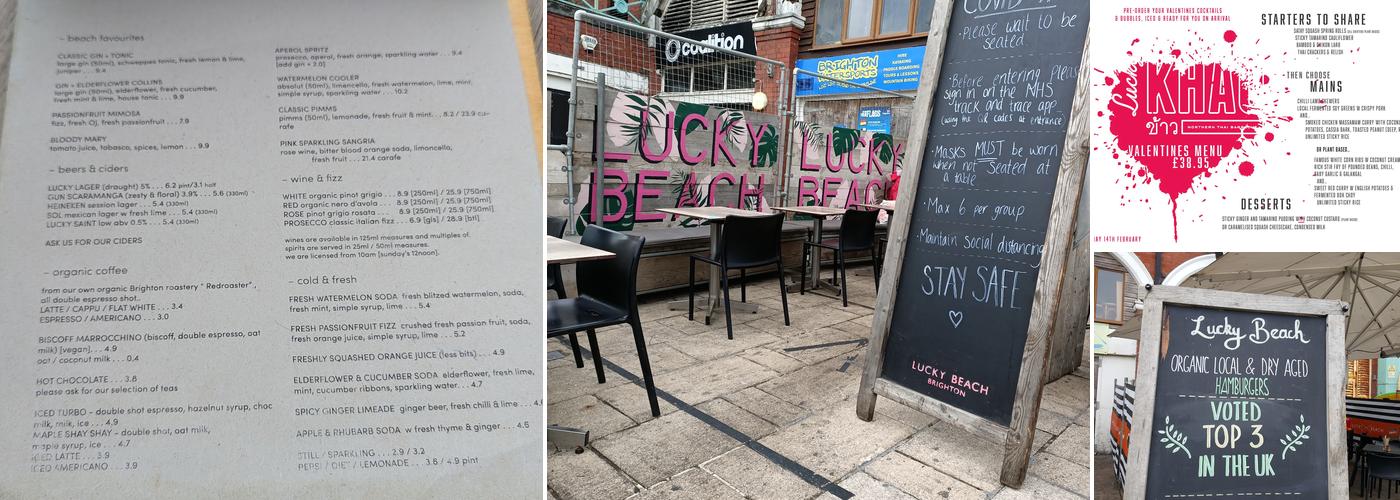 – beach favourites
CLASSIC GIN + TONIC
large gin (50ml), schweppes tonic, fresh lemon & lime,
juniper . . . 9.4
GIN + ELDERFLOWER COLLINS
large gin (50ml), elderflower, fresh cucumber,
fresh mint & lime, house tonic . . . 9.9
PASSIONFRUIT MIMOSA
fizz, fresh OJ, fresh passionfruit . . . 7.9
BLOODY MARY
tomato juice, tabasco, spices, lemon . . . 9.9
– beers & ciders
LUCKY LAGER (draught) 5% . . . 6.2 pint/3.1 half
GUN SCARAMANGA (zesty & floral) 3.9% . . . 5.6 (330ml)
HEINEKEN session lager . . . 5.4 (330ml)
SOL mexican lager w fresh lime . . . 5.4 (330ml)
LUCKY SAINT low abv 0.5% . . . 5.4 (330ml)
ASK US FOR OUR CIDERS
– organic coffee
from our own organic Brighton roastery " Redroaster" .,
all double espresso shot..
LATTE / CAPPU / FLAT WHITE . . . 3.4
ESPRESSO / AMERICANO . . . 3.0
BISCOFF MARROCHINO (biscoff, double espresso, oat
milk) [vegan]. . . 4.9
oat / coconut milk . . . 0.4
HOT CHOCOLATE . . . 3.8
please ask for our selection of teas
ICED TURBO – double shot espresso, hazelnut syrup, choc
milk, milk, ice . . . 4.9
MAPLE SHAY SHAY – double shot, oat milk,
maple syrup, ice . . . 4.7
ICED LATTE . . . 3.9
ICED AMERICANO . . . 3.9
APEROL SPRITZ
prosecco, aperol, fresh orange, sparkling water . . . 9.4
[add gin + 2.0]
WATERMELON COOLER
absolut (50ml), limoncello, fresh watermelon, lime, mint,
simple syrup, sparkling water . . . 10.2
CLASSIC PIMMS
pimms (50ml), lemonade, fresh fruit & mint. . . 8.2 / 23.9 ca-
rafe
PINK SPARKLING SANGRIA
rose wine, bitter blood orange soda, limoncello,
fresh fruit . . . 21.4 carafe
– wine & fizz
WHITE organic pinot grigio . . . 8.9 [250ml] / 25.9 [750ml]
RED organic nero d'avola . . . 8.9 [250ml] / 25.9 [750ml]
ROSE pinot grigio rosata . . . 8.9 [250ml] / 25.9 [750ml]
PROSECCO classic italian fizz . . . 6.9 [gls] / 28.9 [btl]
wines are available in 125ml measures and multiples of.
spirits are served in 25ml / 50ml measures.
we are licensed from 10am [sunday's 12noon].
– cold & fresh
FRESH WATERMELON SODA fresh blitzed watermelon, soda,
fresh mint, simple syrup, lime . . . 5.4
FRESH PASSIONFRUIT FIZZ crushed fresh passion fruit, soda,
fresh orange juice, simple syrup, lime . . . 5.2
FRESHLY SQUASHED ORANGE JUICE (less bits) . . . 4.9
ELDERFLOWER & CUCUMBER SODA elderflower, fresh lime,
mint, cucumber ribbons, sparkling water. . . 4.7
SPICY GINGER LIMEADE ginger beer, fresh chilli & lime . . .
APPLE & RHUBARB SODA w fresh thyme & ginger . . . 4.6
STILL / SPARKLING . . . 2.9 / 3.2
PEPSI / DIET / LEMONADE . . . 3.8 / 4.9 pint
coalition
BRIGHTON
WATERSPORTS
HIRE
KAYAKING
PADDLE BOARDING
TOURS & LESSONS
MOUNTAIN BIKING
LUCKY
BEACH
LUCKY
BEAC
COVID
· Please wait to be
seated
· Before entering Please
sign in on the NHS
track and trace app.
(using the QR codes at entrance
· Masks MUST be worn
when not seated at
a table
· Max 6 per group
· Maintain social distancing
STAY SAFE
LUCKY BEACH
BRIGHTON
PRE-ORDER YOUR VALENTINES COCKTAILS
& BUBBLES, ICED & READY FOR YOU ON ARRIVAL
Lucky
KHAO
ข้าว
NORTHERN THAI
VALENTINES MENU
£38.95
AY 14TH FEBRUARY
STARTERS TO SHARE
SATAY SQUASH SPRING ROLLS
STICKY TAMARIND CAULIFLOWER
BAMBOO &
THAI CRACKERS & RELISH
THEN CHOOSE
MAINS
CHILLI
LOCAL SOY GREENS W CRISPY PORK
AND..
SMOKED CHICKEN MASSAMAN CURRY WITH
POTATOES, CASSIA BARK, TOASTED PEANUT
UNLIMITED STICKY RICE
OR PLANT BASED..
FAMOUS WHITE CORN RIBS W COCONUT
RICH STIR FRY OF POUNDED BEANS, CHILLI,
BABY GARLIC & GALANGAL
AND..
SWEET RED CURRY W ENGLISH POTATOES &
FERMENTED SOY CHEF
UNLIMITED STICKY RICE
DESSERTS
STICKY GINGER AND TAMARIND PUDDING W COCONUT CUSTARD
OR CARAMELISED SQUASH CHEESECAKE, CONDENSED MILK
Lucky Beach
ORGANIC LOCAL & DRY AGED
HAMBURGERS
VOTED
TOP 3
IN THE UK